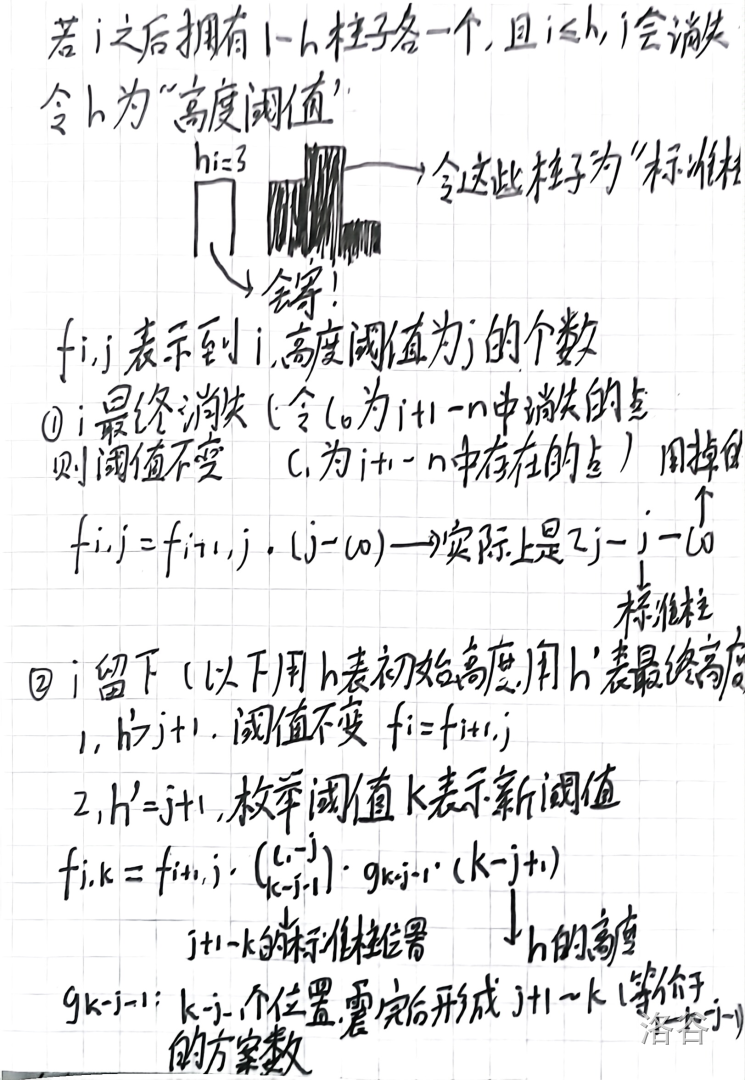 若i之后拥有1-h柱子各一个,且i≤h,i会消失
令h为"高度阈值"
hi=3
令这些柱子为"标准柱
会寄!
fi,j表示到i,高度阈值为j的个数
①i最终消失(令c0为i+1-n中消失的点
则阈值不变 c1为i+1-n中存在的点) 用掉的
fi,j=fi+1,j·(j-c0)→实际上是2j-j-c0
标准柱
②i留下(以下用h表初始高度,用h'表最终高度
1,h'>j+1.阈值不变 fi=fi+1,j
2,h'=j+1,枚举阈值k表示新阈值
fi,k=fi+1,j·(c1-j k-j-1)·gk-j-1·(k-j+1)
j+1-k的标准柱位置
h的高度
gk-j-1:k-j-1个位置,震完后形成j+1~k(等价于
-j-1)
的方案数
洛谷